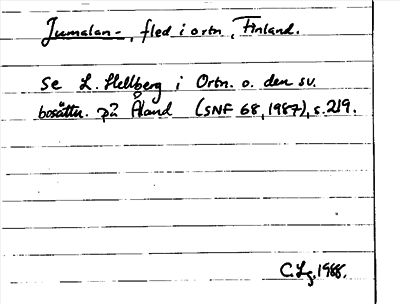 Jumalan-, fled i ortn, Finland.
Se L. Hellberg i Ortn. o. den sv.
bosättn. på Åland (SNF 68, 1987), s. 219.
C.Lg. 1988.